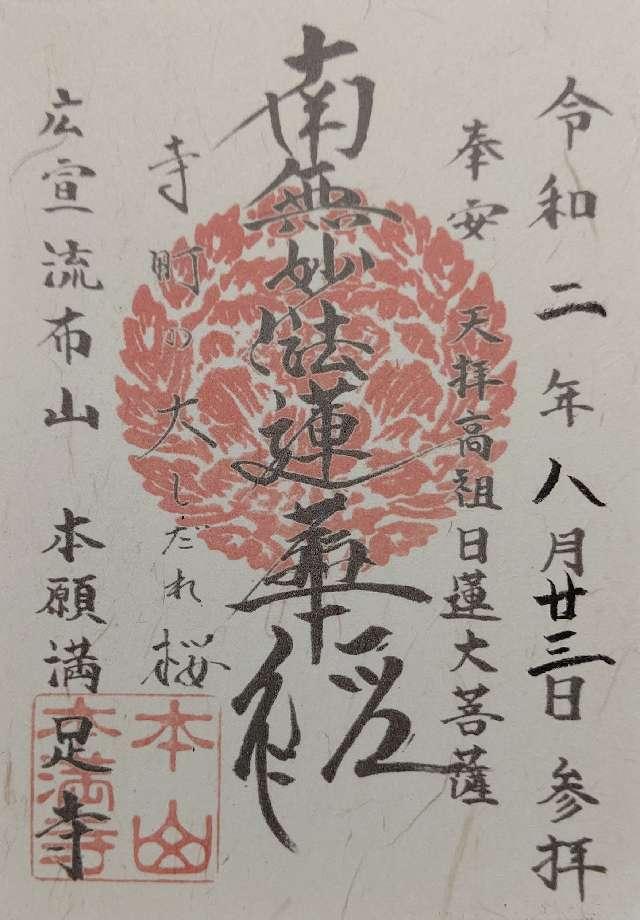 令和二年八月廿三日 参拝
奉安 天拝高祖日蓮大菩薩
南無妙法蓮華経
寺町の大しだれ桜
広宣流布山 本願満足寺
本山
本満寺